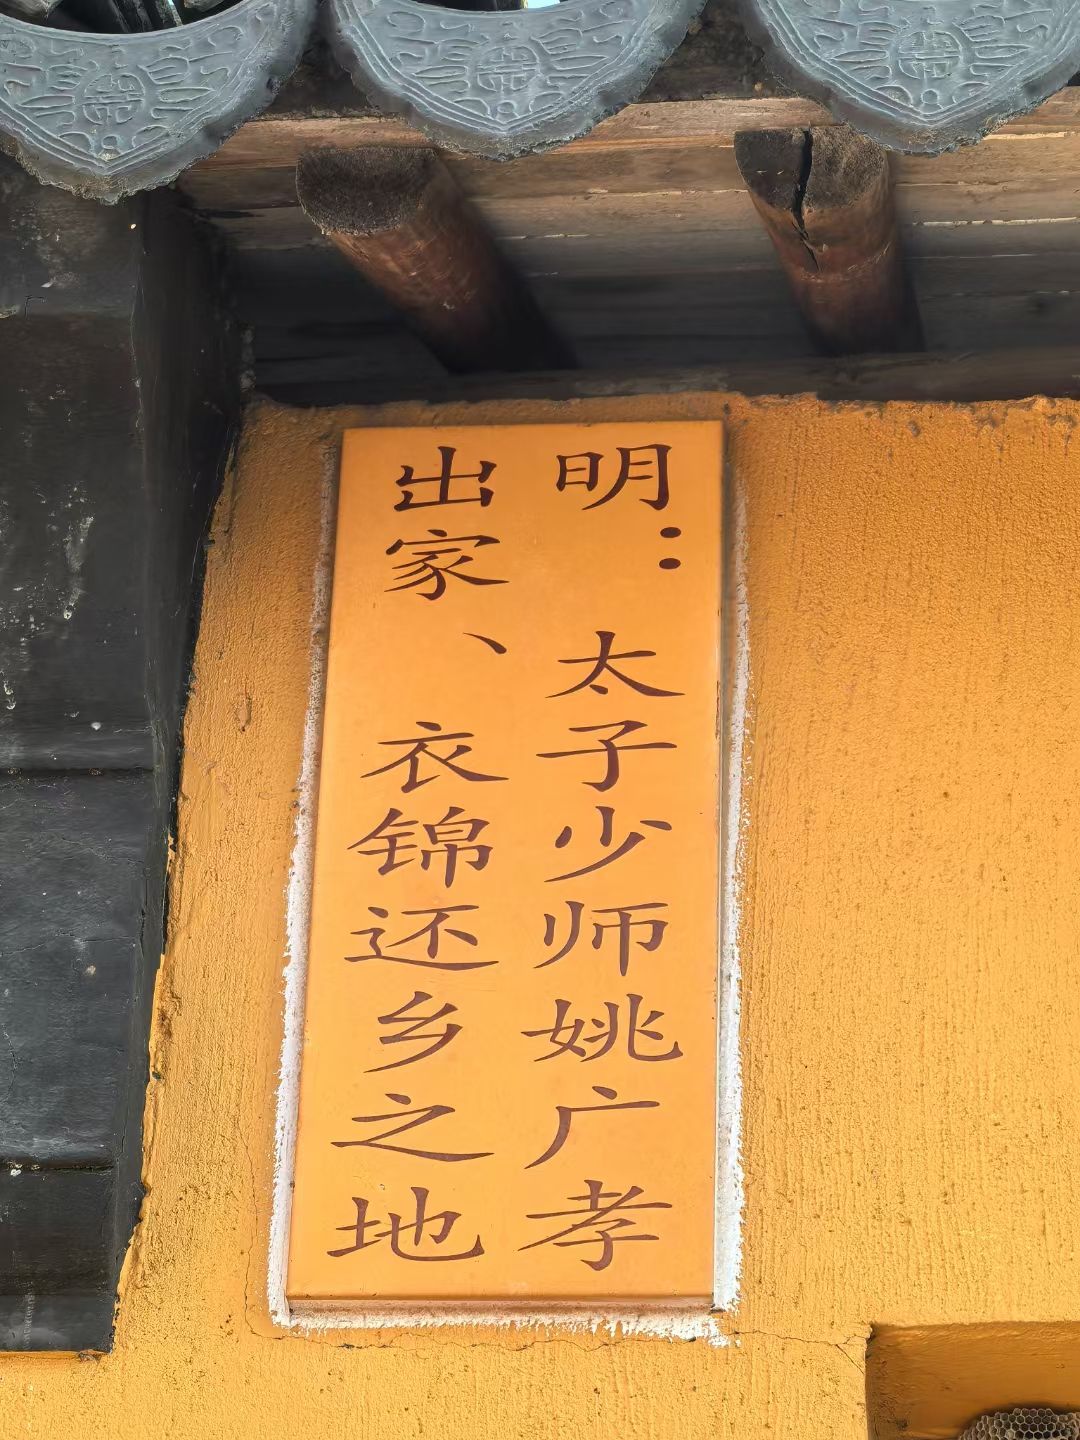 明：太子少师姚广孝
出家、衣锦还乡之地